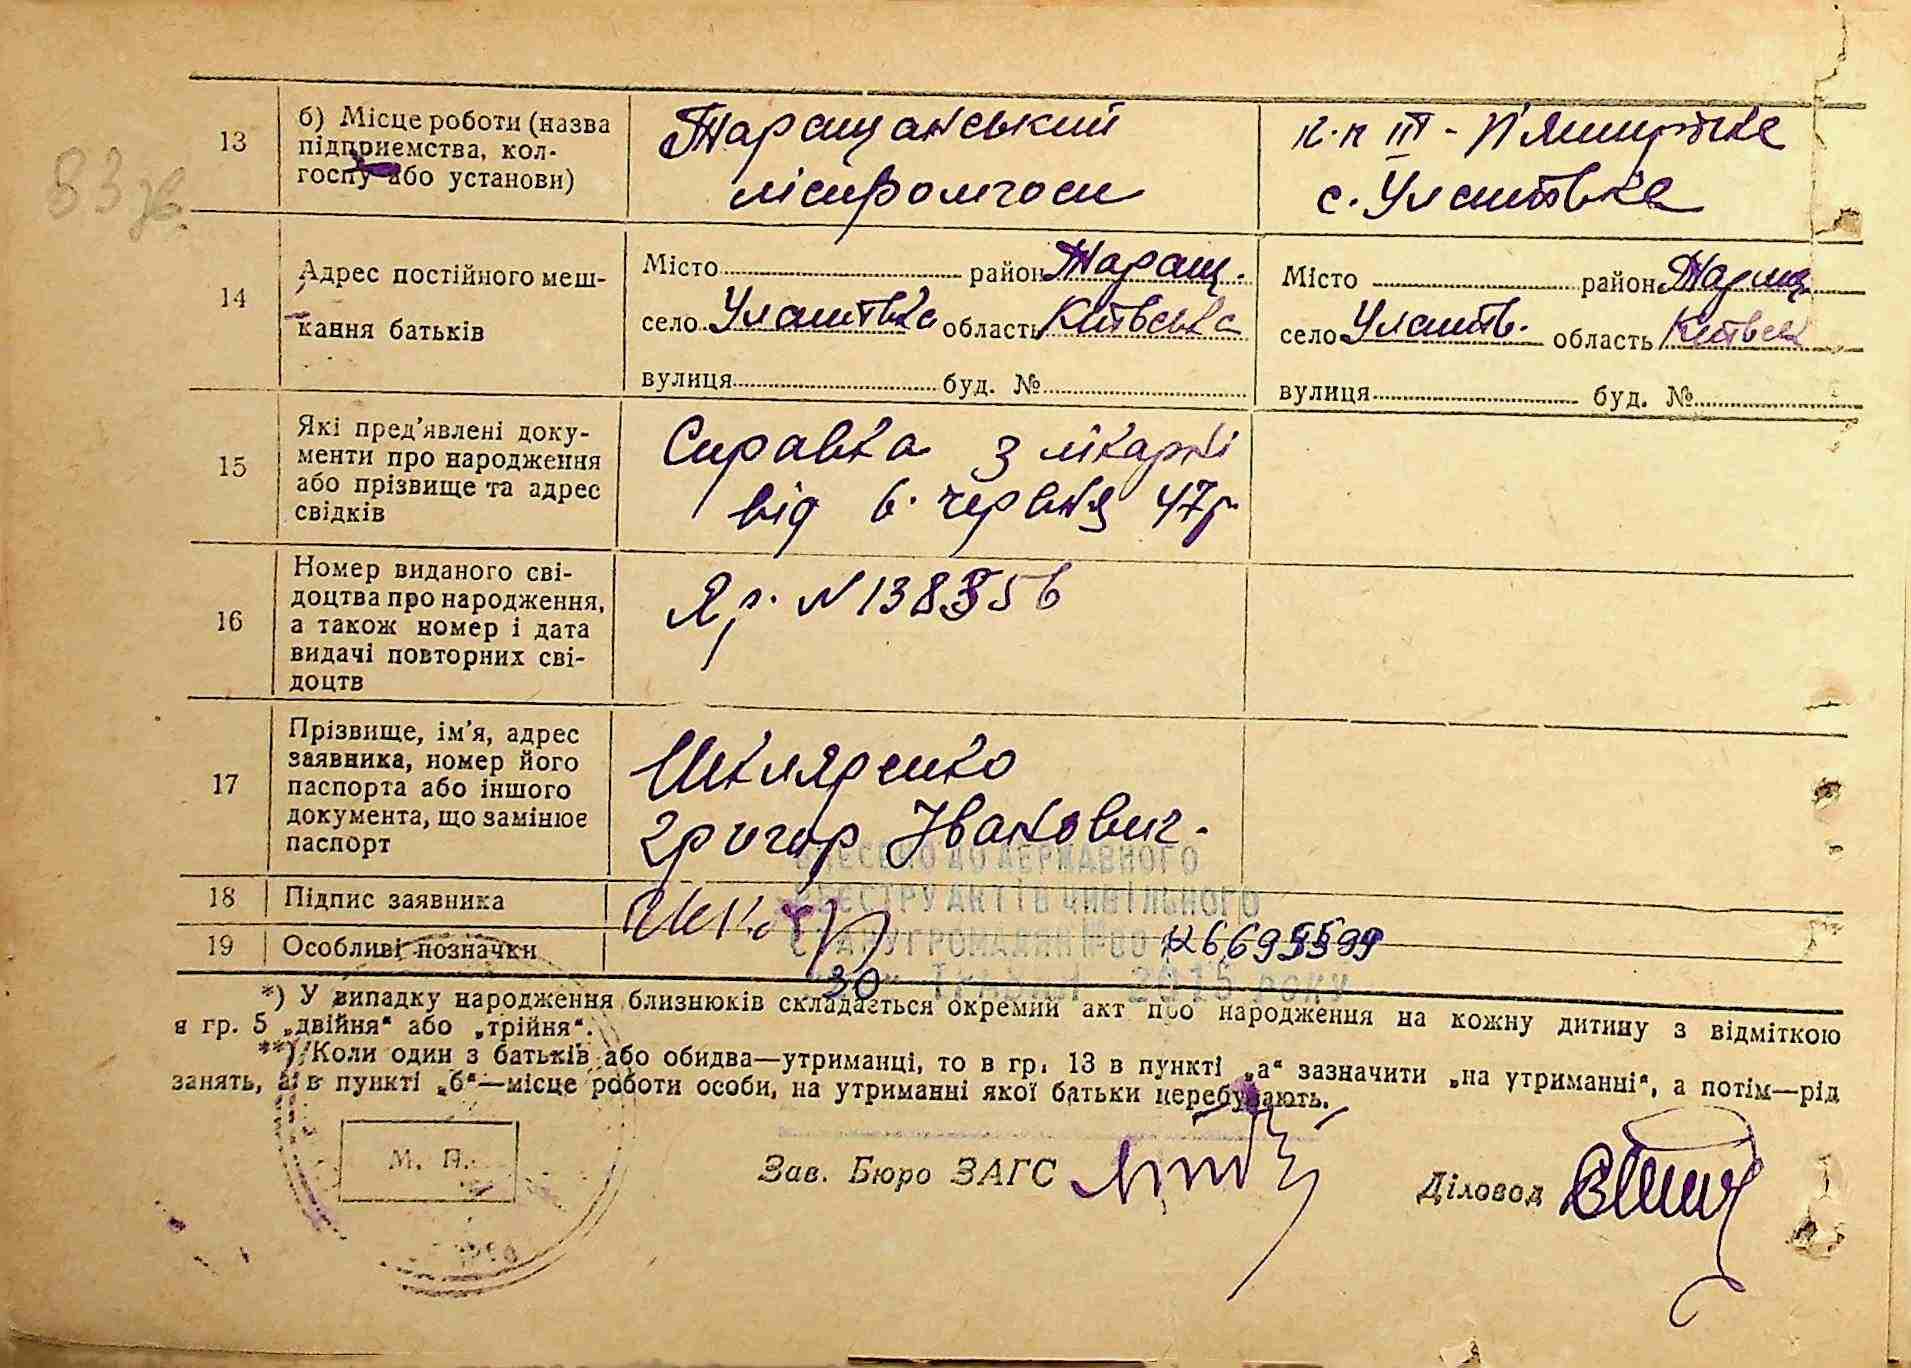 83 зв.
13
б) Місце роботи (назва
підприємства, кол-
госпу або установи)
Таращанський
ліспромгосп
к-п ІІІ - П'ятирічка
с. Улашівка
14
Адрес постійного меш-
кання батьків
Місто район Таращ.
село Улашівка область Київська
вулиця буд. №
Місто район Таращ.
село Улашів. область Київськ
вулиця буд. №
15
Які пред'явлені доку-
менти про народження
або прізвище та адрес
свідків
Справка з лікарні
від 6. червня 47р.
16
Номер виданого сві-
доцтва про народження,
а також номер і дата
видачі повторних сві-
доцтв
17
Прізвище, ім'я, адрес
заявника, номер його
паспорта або іншого
документа, що замінює
паспорт
Шкляренко
Григор Іванович.
18
Підпис заявника
19
Особливі позначки
ВНЕСЕНО ДО ДЕРЖАВНОГО
РЕЄСТРУ АКТІВ ЦИВІЛЬНОГО
СТАНУ ГРОМАДЯН
30 травня 2015 року
*) У випадку народження близнюків складається окремий акт про народження на кожну дитину з відміткою
в гр. 5 „двійня“ або „трійня“.
**) Коли один з батьків або обидва—утриманці, то в гр. 13 в пункті „а“ зазначити „на утриманні“, а потім—рід
занять, а в пункті „б“—місце роботи особи, на утриманні якої батьки перебувають.
М. П.
Зав. Бюро ЗАГС
Діловод